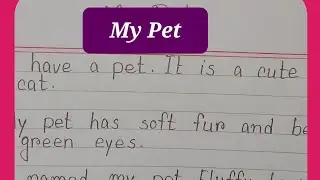 My Pet
have a pet. It is a cute
cat.
pet has soft fur and
green eyes.
my pet